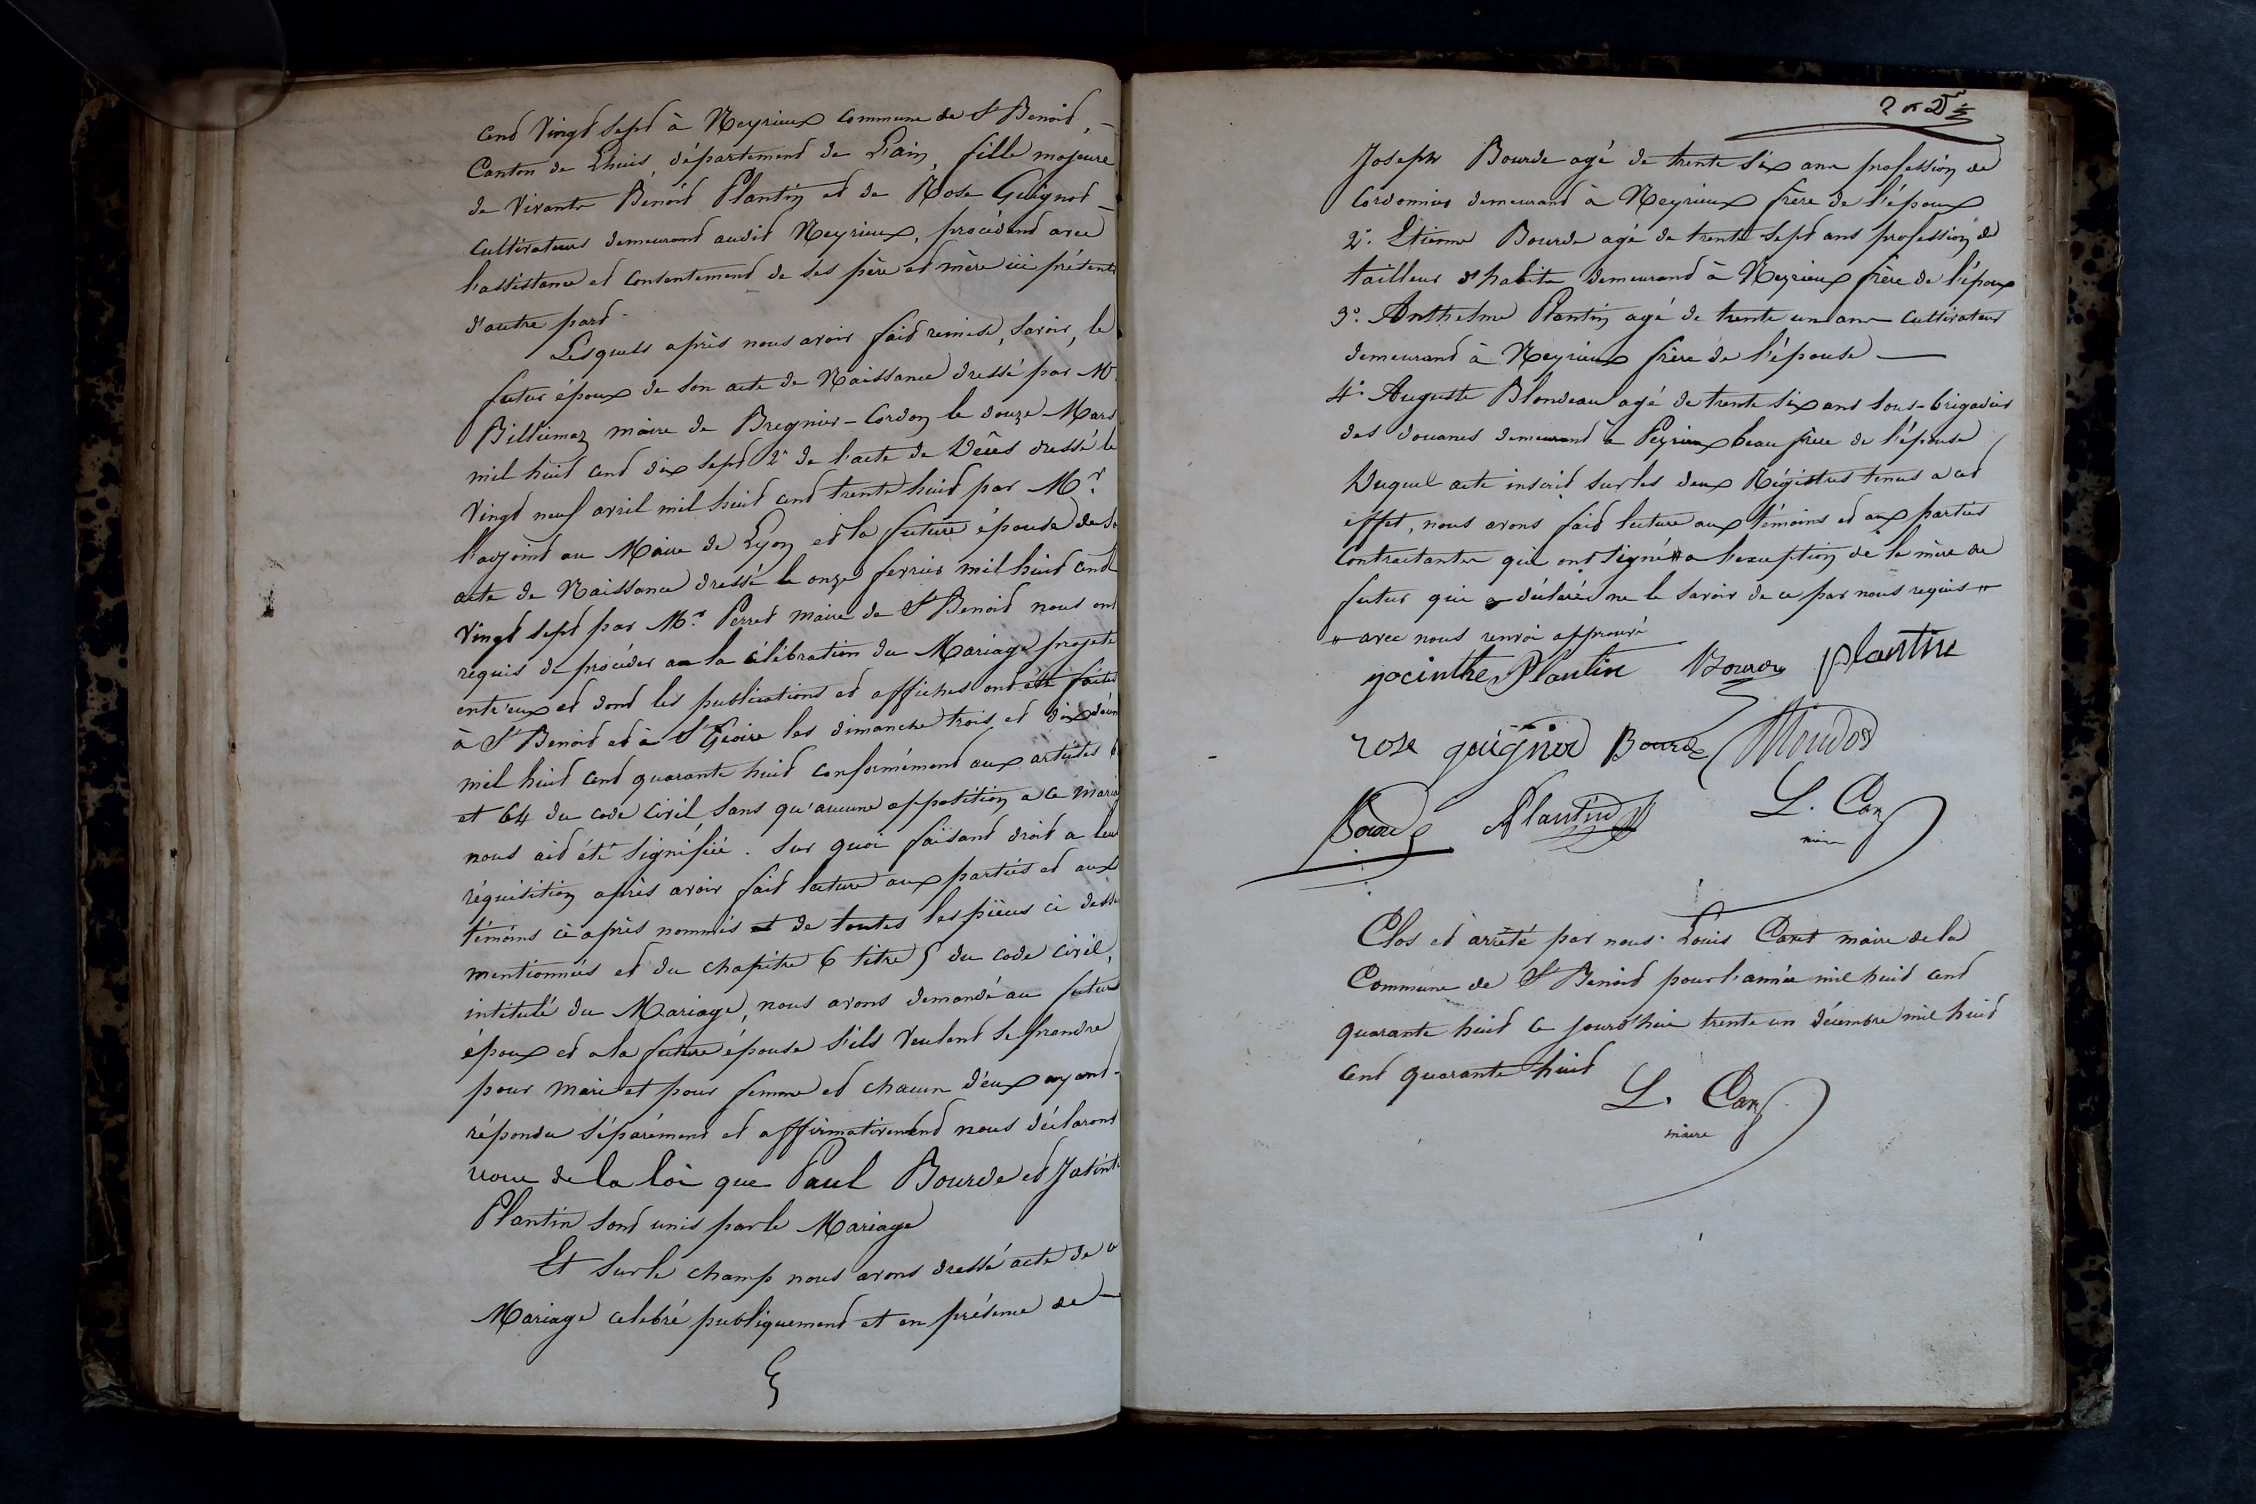 cent vingt sept à Neyrieux commune de St Benoit, –
Canton de Lhuis, département de L'ain, fille majeure
de vivants Benoit Plantin et de Rose Guignot –
cultivateurs demeurant audit Neyrieux, procédent avec
l'assistance et consentement de ses père et mère ici présents
d'autre part.
Lesquels après nous avoir fait remise, savoir, le
futur époux de son acte de Naissance dressé par Mr
Billiemaz maire de Bregnier-Cordon le douze Mars
mil huit cent dix sept 2° de l'acte de Décès dressé le
vingt neuf avril mil huit cent trente huit par Mr.
l'adjoint au Maire de Lyon et la future épouse de so
acte de Naissance dressé le onze fevrier mil huit cent
vingt sept par Mr. Perret maire de St Benoit nous ont
requis de procéder a la célébration du Mariage projeté
entr'eux et dont les publications et affiches ont été faites
à St Benoit et à St Geoire les dimanche trois et dix
mil huit cent quarante huit conformément aux articles 6
et 64 du code civil, sans qu'aucune opposition a ce maria
nous ait été signifiée. Sur quoi faisant droit a leur
réquisition après avoir fait lecture aux parties et aux
témoins ci après nommés et de toutes les pièces ci dessu
mentionnées et du chapitre 6 titre 5 du code civil,
intitulé du Mariage, nous avons demandé au futur
époux et a la future épouse s'ils veulent se prendre
pour mari et pour femme et chacun d'eux ayant –
répondu séparément et affirmativement nous déclarons
de la loi que Paul Bourde et Jatinte
Plantin sont unis par le Mariage
Et sur le champ nous avons dressé acte de ce
Mariage celebré publiquement et en présence de –
Joseph Bourde agé de trente six ans profession de
Cordonnier demeurant à Neyrieux frère de l'époux
2°. Etienne Bourde agé de trente sept ans profession de
tailleur d'habits demeurant à Neyrieux frère de l'époux
3°. Anthelme Plantin agé de trente un ans cultivateur
demeurant à Neyrieux frère de l'épouse –
4° Auguste Blondeau agé de trente six ans sous-brigadier
des douanes demeurant à Peyrieux beau frère de l'épouse
Duquel acte inscrit sur les deux Régistres tenus a cet
effet, nous avons fait lecture aux témoins et aux parties
contractantes qui ont signé # a l'exception de la mère du
futur qui a déclaré ne le savoir de ce par nous requis #
# avec nous renvoi approuvé
jacinthe Plantin Bourde plantin
rose guignod Bourde
Bourde Plantin L. Caret
maire
Clos et arrêté par nous Louis Caret maire de la
Commune de St Benoit pour l'année mil huit cent
quarante huit ce jourd'hui trente un décembre mil huit
cent quarante huit
L. Caret
maire